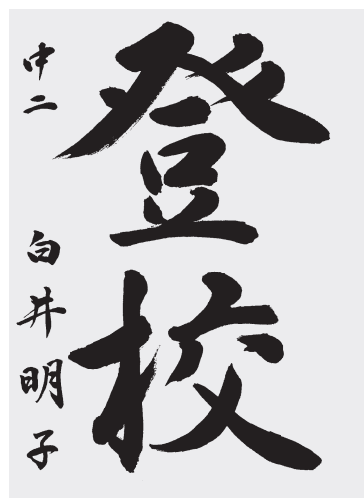 登校
中二 白井明子